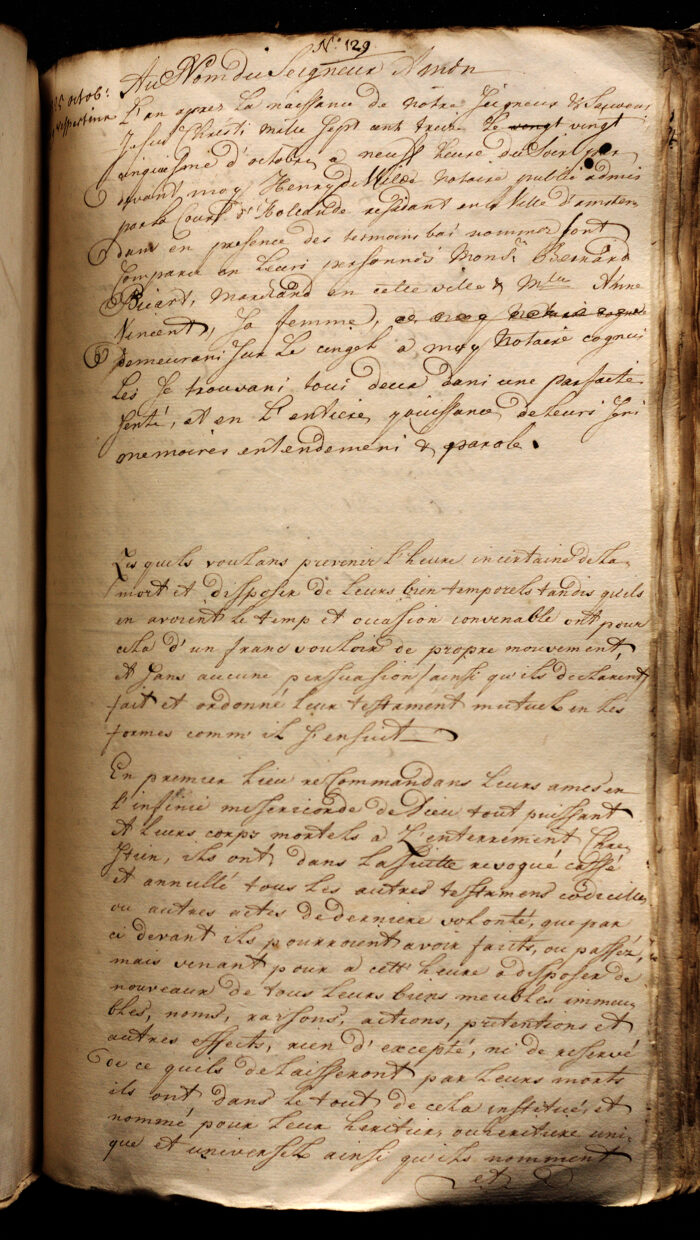 N.° 129.
Au Nom du Seigneur Amen
25 octob:
vespertina
L'an apres la naissance de notre Seigneur & Sauveur
Jesus Christi mille sept cent treize le vengt vingt
cinquiesme d'octobre a neuff heure du Soir par
devant moy Henry de Wilde Notaire public admis
par la Court d'Hollande residant en la Ville d'amster
dam en presence des temoins bas nommes sont
comparu en leurs personnes Mons.r Bernard
Picart, marchand en cette ville & M.lle Anne
Vincent, sa femme, moy notaire cognu
demeurans sur le cingel a moy Notaire cognus
les se trouvans tous deux dans une parfaite
senté, et en l'entiere jouissance de leurs sens
memoires entendement & parole.
Les quels voulans prevenir l'heure incertaine de la
mort et disposer de leurs bien temporels tandis quils
en avoient le temp et occasion convenable ont pour
cela d'un franc vouloir de propre mouvement
et sans aucune persuasion (ainsi qu'ils declarent)
fait et ordonné leur testament mutuel en les
formes comm' il s'ensuit
En premier lieu reccommandans leurs ames en
l'infinie misericorde de Dieu tout puissant
et leurs corps mortels à l'enterrement Chre
stien, ils ont dans la suitte revoqué cassé
et annullé tous les autres testamens codicilles
ou autres actes de derniere volonté, que par
ci devant ils pourroient avoir faits, ou passez,
mais venant pour a cett' heure a disposer de
nouveaux de tous leurs biens meubles immeu
bles, noms, raisons, actions, pretentions et
autres effects, rien d'excepté, ni de reservé
de ce quils delaisseront par leurs morts
ils ont dans le tout de cela institué, et
nommé pour leur heritier, ou heritiere uni-
que et universel ainsi qu'ils nomment
et